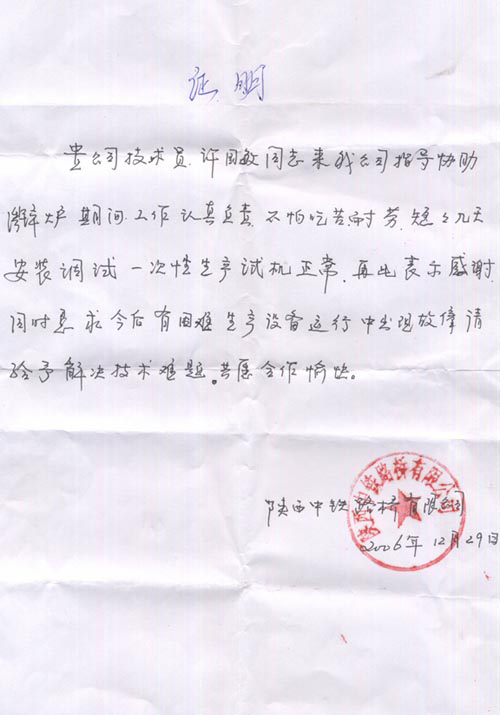 证明
贵公司技术员.许国敏同志来我公司指导协助
期间.工作认真负责.不怕吃苦耐劳.短短几天
安装调试一次性生产试机正常.再此表示感谢
同时恳求今后有困难生产设备运行中出现故障请
给予解决技术难题。共愿合作愉快。
陕西中铁路桥有限公司
2006年12月29日
陕西中铁路桥有限公司